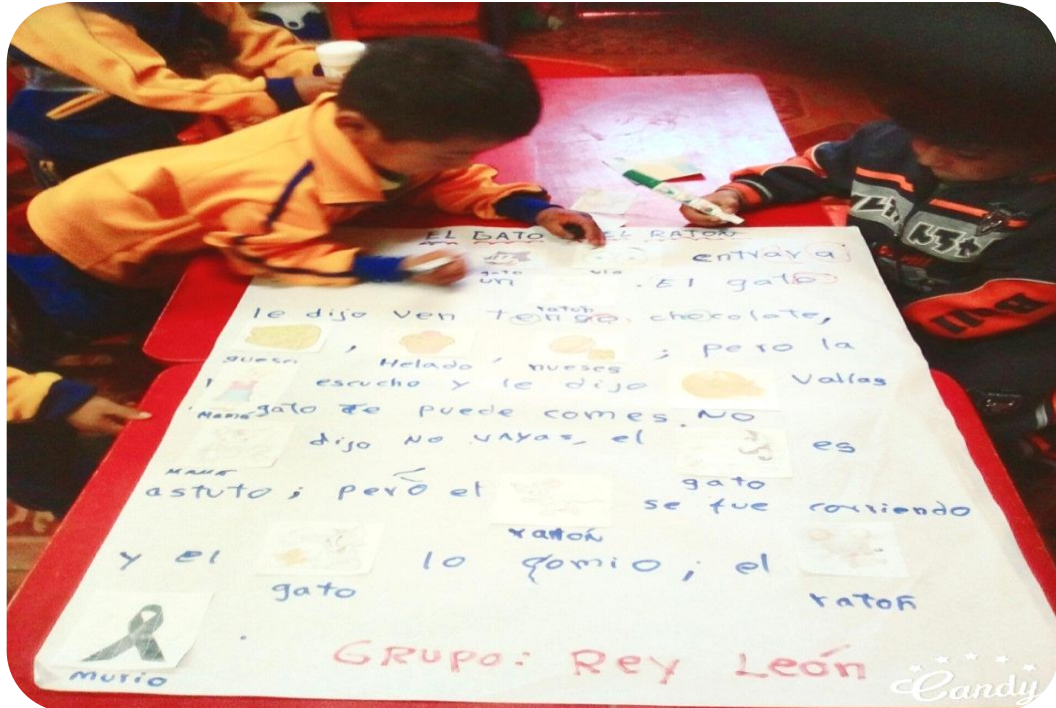 EL GATO Y EL RATÓN
gato vio entrar a
un ratón. El gato
le dijo ven tengo chocolate,
queso, Helado, nueses; pero la
escucho y le dijo Vallas
Mamá gato te puede comes. No
dijo No vayas, el es
mamá gato
astuto; pero el se fue corriendo
ratón
y el lo comio; el
gato ratón
murio
GRUPO: Rey León
Candy